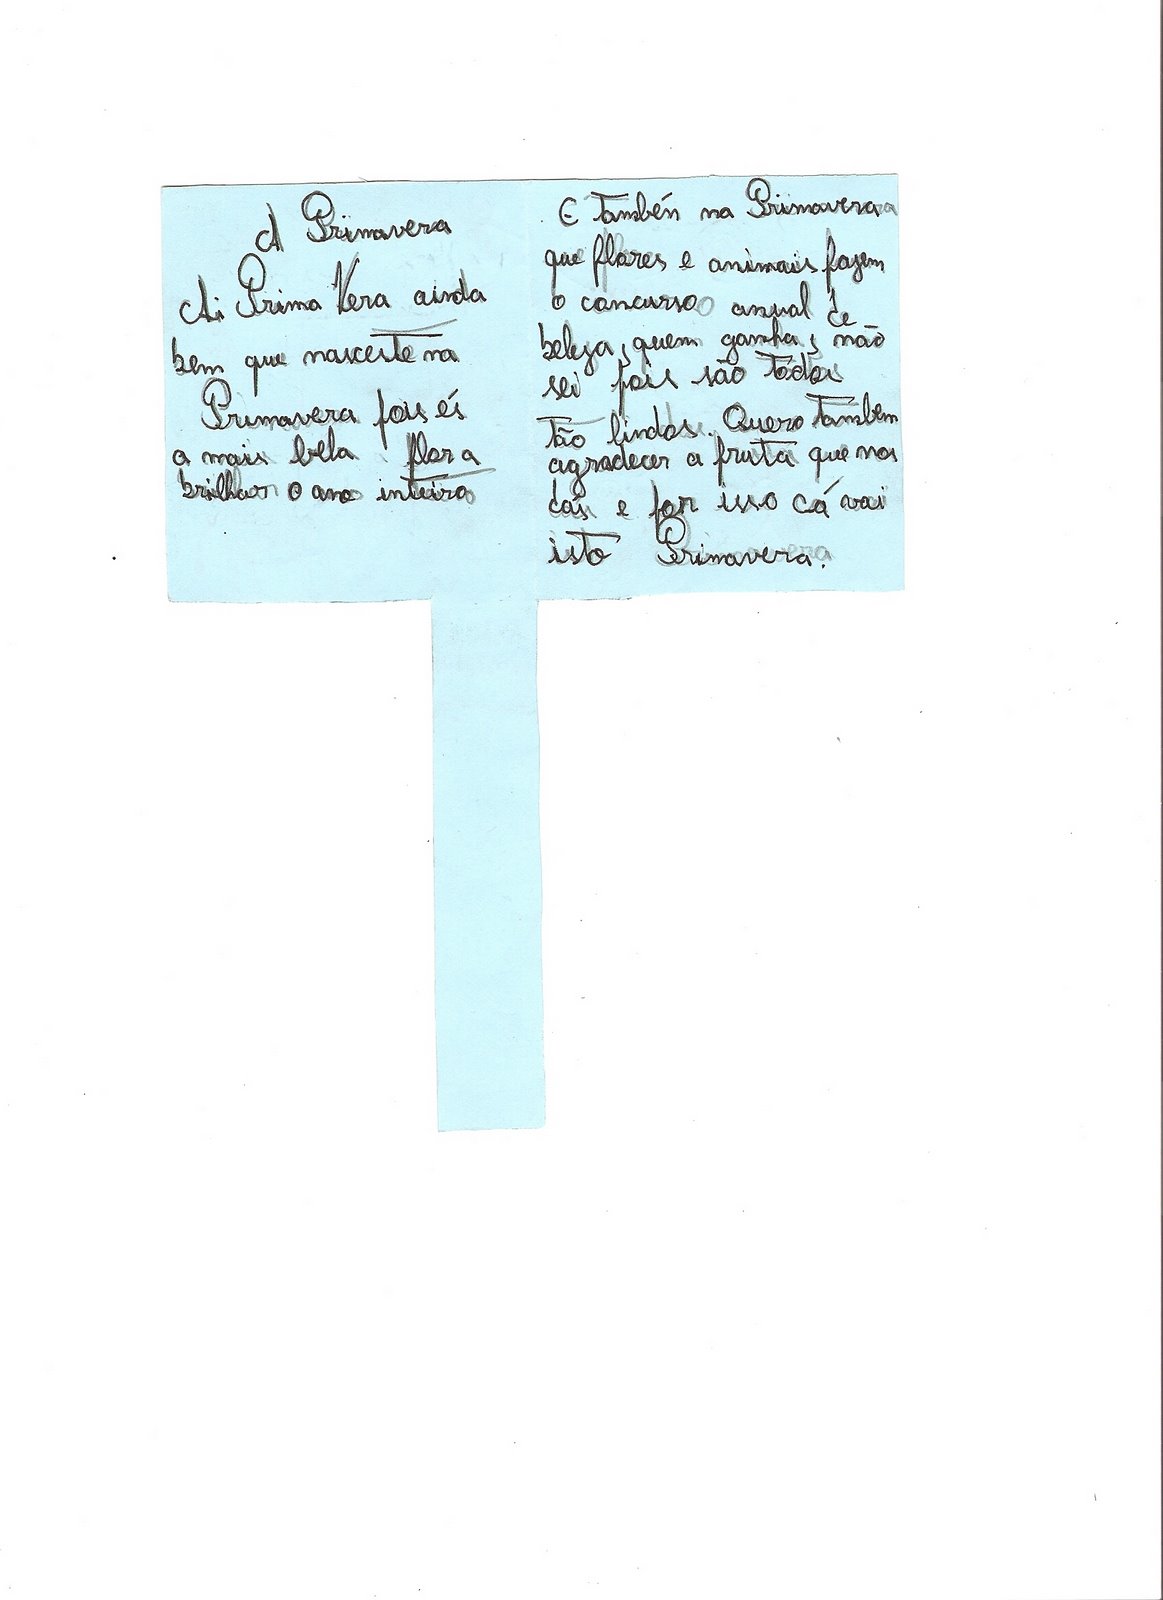 A Primavera
Ai Prima Vera ainda
bem que nasceste na
Primavera pois és
a mais bela flor a
brilhar o ano inteiro
E também na Primavera
que flores e animais fazem
o concurso anual de
beleza, quem ganha, não
sei pois são todos
tão lindos. Quero também
agradecer a fruta que nos
dás e por isso cá vai
isto Primavera.